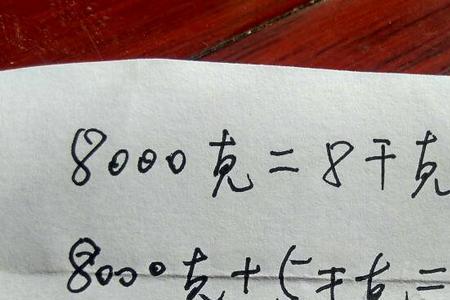 8000克=8千克
8000克+5千克=